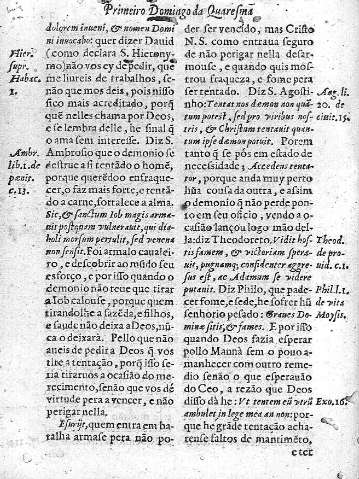 Primeiro Domingo da Quaresma
dolorem inueni, & nomen Domi
ni inuocabo: quer dizer Dauid
(como declara S. Hierony-
mo) não vos ey de pedir, que
me liureis de trabalhos, se-
não que mos deis, pois nisso
fico mais acreditado, porq̃
quẽ nelles chama por Deos,
e se lembra delle, he sinal q̃
o ama sem interesse. Diz S.
Ambrosio que o demonio se
destrue a si tentãdo o homẽ,
porque querẽdo o enfraque-
cer, o faz mais forte, e tentã-
do a carne, fortalece a alma.
Sic, & sanctum Iob magis arma-
uit postquam vulnerauit, qui dia-
boli morsum perpulit, sed venena
non sensit. Foi armalo caualei-
ro, e descobrir ao mũdo seu
esforço, e por isso quando o
demonio não teue que tirar
a Iob calouse, porque quem
tirandolhe a fazẽda, e filhos,
e saude não deixa a Deos, nũ-
ca o deixará. Pello que não
aueis de pedir a Deos q̃ vos
tire a tentação, porq̃ isso se-
ria tiraruos a ocasião do me-
recimento, senão que vos dé
virtude pera a vencer, e não
perigar nella.
Esurijt, quem entra em ba-
talha armase pera não po-
Hier.
supr.
Habac.
1.
Ambr.
lib. 1. de
pœnit.
c. 13.
der ser vencido, mas Cristo
N. S. como entraua seguro
de não perigar nella desar-
mouse, e quando quis mos-
trou fraqueza, e fome pera
ser tentado. Diz S. Agosti-
nho: Tentat nos dæmon non quã-
tum potest, sed pro viribus nos-
tris, & Christum tentauit quan-
tum ipse dæmon potuit. Porem
tanto q̃ se pòs em estado de
necesidade; Accedens tenta-
tor, porque anda muy perto
hũa cousa da outra, e assim
o demonio q̃ não perde pon-
to em seu oficio, vendo a o-
casião lançou logo mão del-
la: diz Theodoreto, Vidit hos-
tis famem, & victoriam spera-
uit, pugnamq; confidenter aggre-
sus est, ac Adamam se videre
putauit. Diz Philo, que pade-
cer fome, e sede, he sofrer hũ
senhorio pesado: Graues Do-
minæ sitis, & fames. E por isso
quando Deos fazia esperar
pollo Mannà sem o pouo a-
manhecer com outro reme-
dio senão o que esperauão
do Ceo, a rezão que Deos
disso dà he: Vt tentem eũ vtrũ
ambulet in lege mea an non: por-
que he grãde tentação acha-
rense faltos de mantimẽto,
Aug. li.
20. de
ciuit. 15.
Theod.
de pro-
uid. c. 1.
Phil. l. 1.
de vita
Moysis.
Exo. 16.